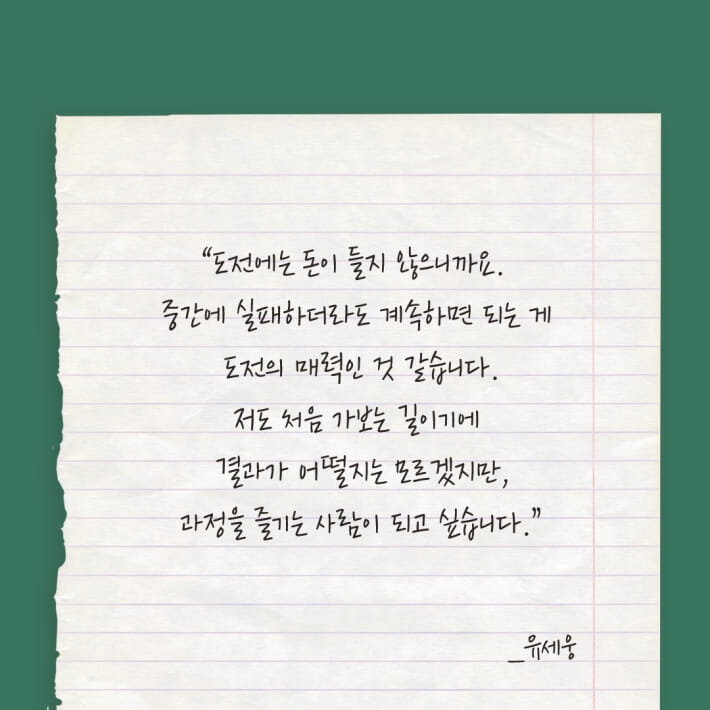 “도전에는 돈이 들지 않으니까요.
중간에 실패하더라도 계속하면 되는 게
도전의 매력인 것 같습니다.
저도 처음 가보는 길이기에
결과가 어떨지는 모르겠지만,
과정을 즐기는 사람이 되고 싶습니다.”
_유세웅